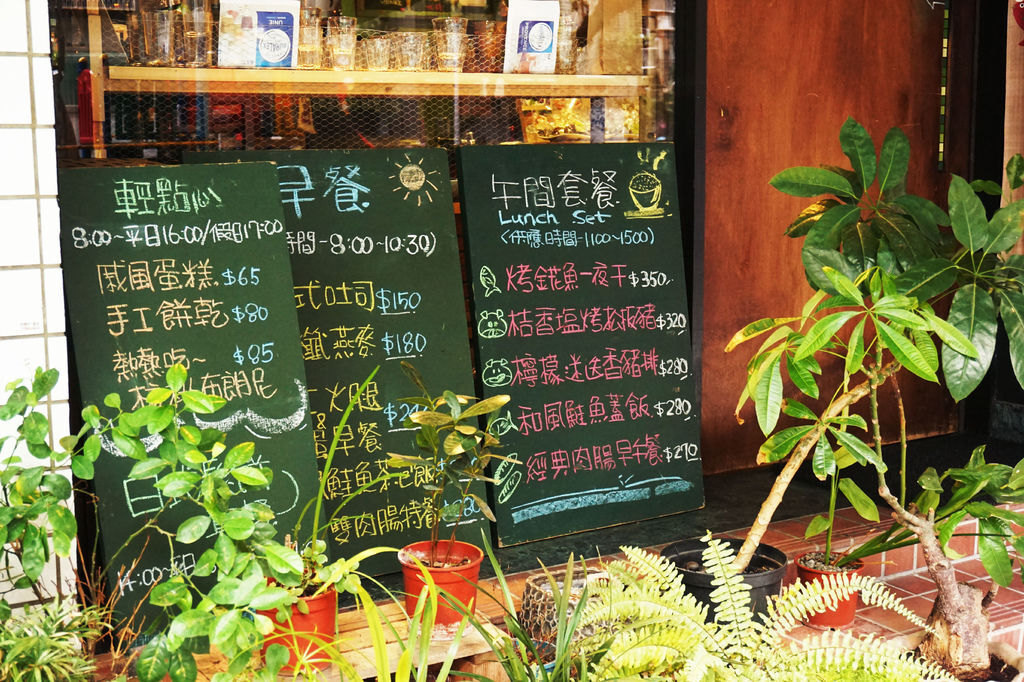 輕點心
8:00~平日16:00/假日17:00
戚風蛋糕 $65
手工餅乾 $80
熱熱吃~ $85
布朗尼
14:00~
早餐
時間-8:00~10:30)
式吐司 $150
燕麥 $180
火腿
早餐
鮭魚 飯
雙肉腸特餐
午間套餐
Lunch Set
(供應時間-1100~1500)
烤 魚一夜干 $350
桔香塩烤松板豬 $320
檸檬迷迭香豬排 $280
和風鮭魚蓋飯 $280
經典肉腸早午餐 $270